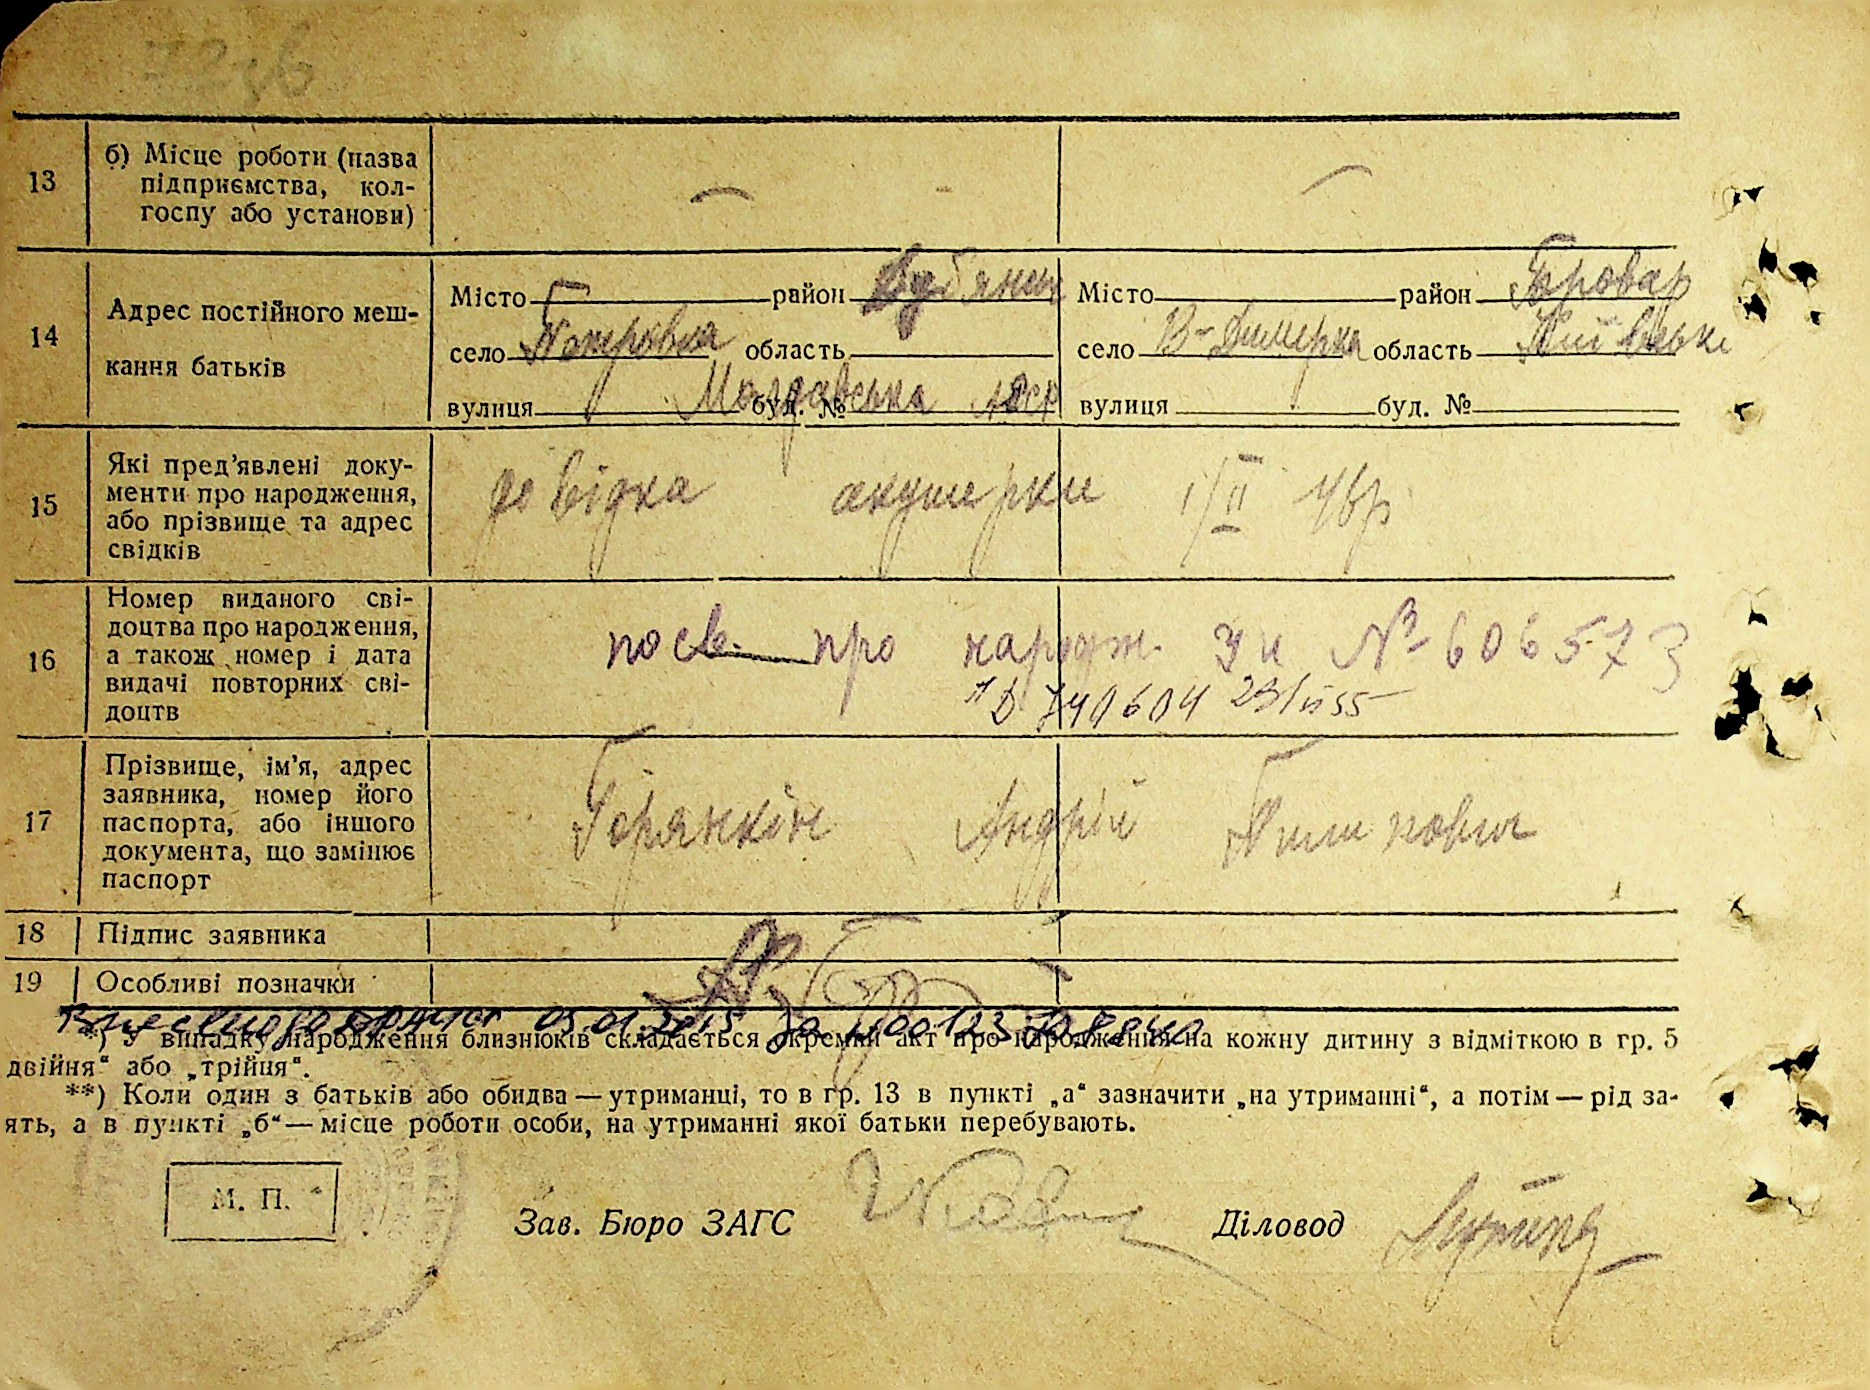 13
б) Місце роботи (назва
підприємства, кол-
госпу або установи)
—
—
14
Адрес постійного меш-
кання батьків
Місто район
село Покровка область
Молдавська
вулиця буд. №
Місто район Бровар
село В-Димерка область Київська
вулиця буд. №
15
Які пред’явлені доку-
менти про народження,
або прізвище та адрес
свідків
довідка акушерки 1/II 44р
16
Номер виданого сві-
доцтва про народження,
а також номер і дата
видачі повторних сві-
доцтв
посв. про народж. № 606573
740604
17
Прізвище, ім’я, адрес
заявника, номер його
паспорта, або іншого
документа, що замінює
паспорт
Горянкін Андрій
18
Підпис заявника
19
Особливі позначки
*) У випадку народження близнюків складається окремий акт про народження на кожну дитину з відміткою в гр. 5
двійня“ або „трійня“.
**) Коли один з батьків або обидва — утриманці, то в гр. 13 в пункті „а“ зазначити „на утриманні“, а потім — рід за-
ять, а в пункті „б“ — місце роботи особи, на утриманні якої батьки перебувають.
М. П.
Зав. Бюро ЗАГС
Діловод